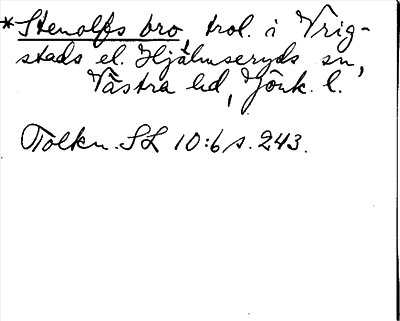 *Stenolfs bro, trol. i Vrig-
stads el. Hjälmseryds sn,
Västra hd, Jönk. l.
Tolkn. SL 10:6 s. 243.